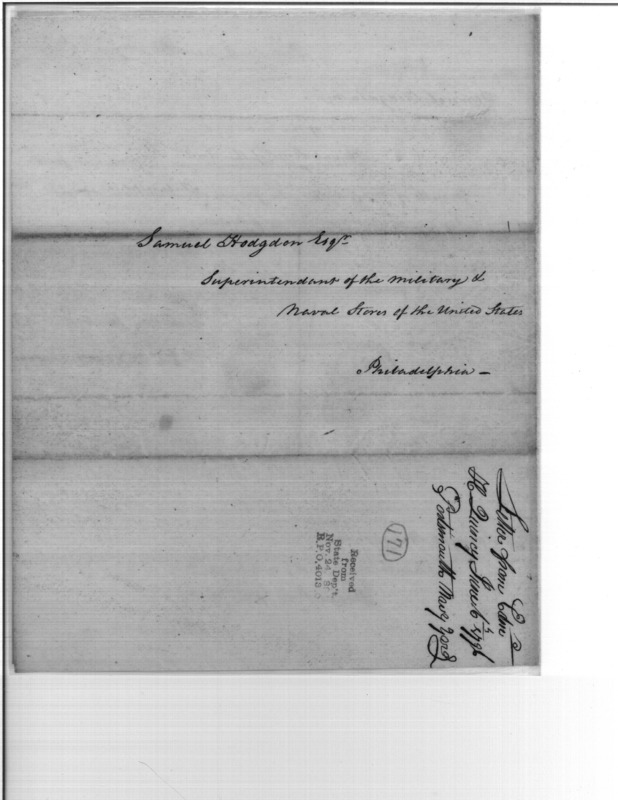 Samuel Hodgdon Esqr.
Superintendant of the military &
Naval Stores of the United States
Philadelphia —
Letter from Edm
H Quincy June 6th 1796
Portsmouth Navy Yard
171
Received
from
State Dep't
Nov. 24
R.P.O. 4013